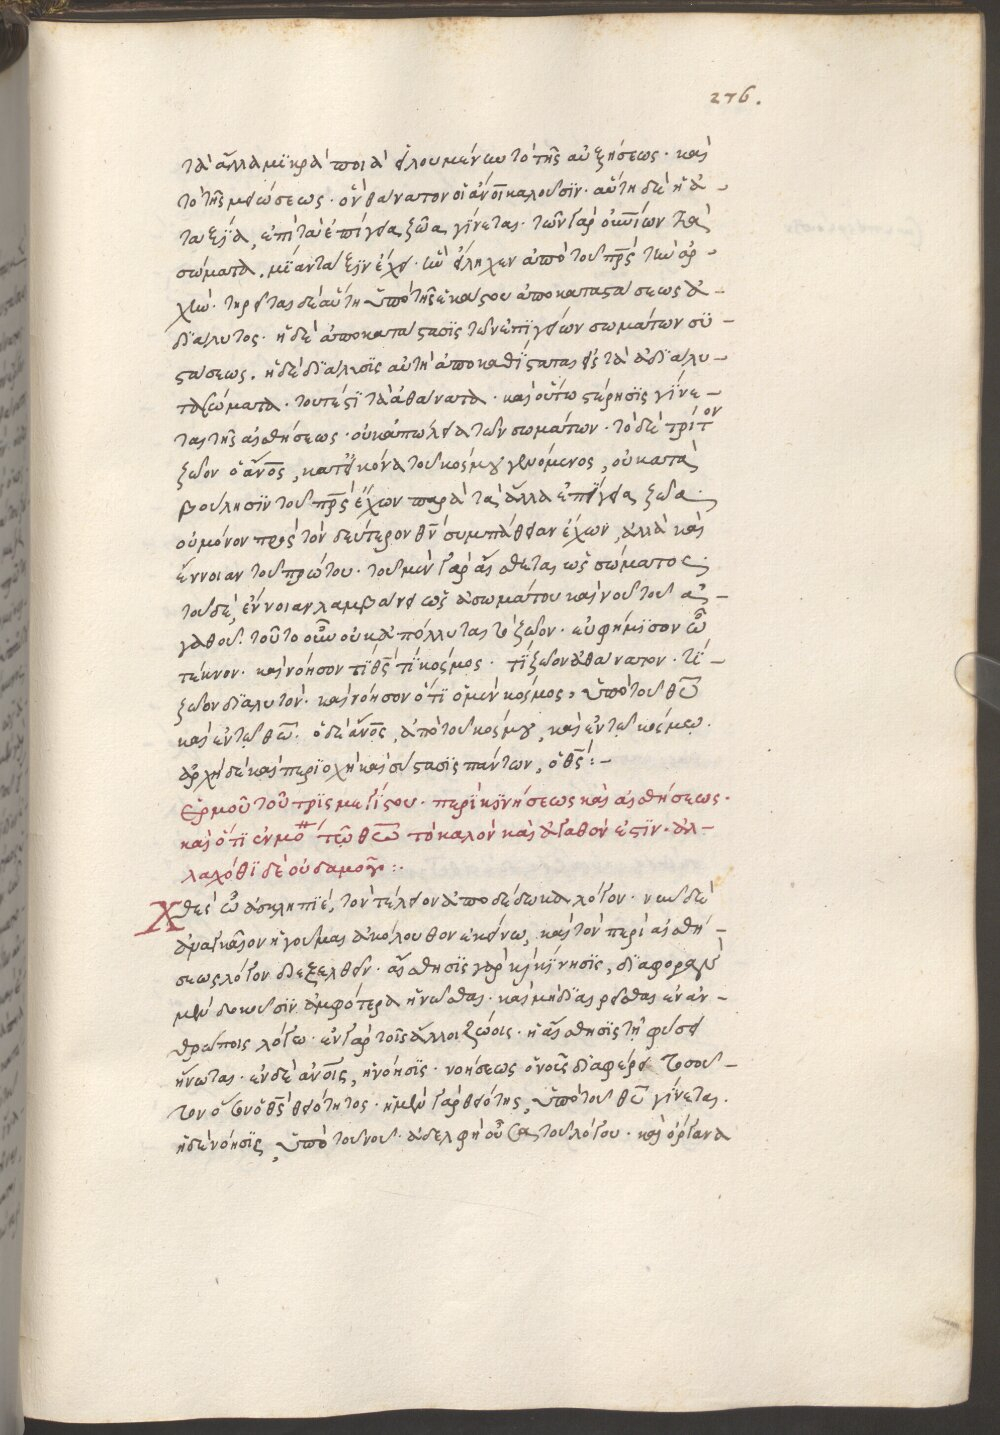 276.
τὰ ἄλλα μϊκρὰ ποιὰ εἱλουμένων τὸ τῆς αὐξήσεως· καὶ
τὸ τῆς μειώσεως· ὃν θάνατον οἱ ἄνοι καλοῦσϊν· αὕτη δὲ ἡ ἀ-
ταξΐα, ἐπὶ τὰ ἐπίγεια ζῶα γίνεται· τῶν γὰρ οὐνίων τὰ
σώματα, μΐαν τάξϊν ἔχει· ἣν εἴληχεν ἀπὸ τοῦ πρς τὴν ἀρ-
χήν· τηρεῖται δὲ αὕτη ὑπὸ τῆς ἑκάστου ἀποκαταστάσεως ἀ-
δϊάλυτος· ἡ δὲ ἀποκατάστασϊς τῶν ἐπϊγείων σωμάτων συ-
στάσεως. ἡ δὲ δϊάλυσϊς αὐτὴ ἀποκαθΐσταται εἰς τὰ ἀδϊάλυ-
τα σώματα· τουτέστϊ τὰ ἀθάνατα· καὶ οὕτω στέρησϊς γίνε-
ται τῆς αἰσθήσεως· οὐκ ἀπώλεια τῶν σωμάτων· τὸ δὲ τρίτον
ζῶον ὁ ἄνος, κατ' εἰκόνα τοῦ κόσμου γενόμενος, οὐ κατὰ
βούλησϊν τοῦ πρς ἔχων παρὰ τὰ ἄλλα ἐπΐγεια ζῶα·
οὐ μόνον πρὸς τὸν δεύτερον θν συμπάθειαν ἔχων, ἀλλὰ καὶ
ἔννοιαν τοῦ πρώτου· τοῦ μὲν γὰρ αἴσθεται ὡς σώματος·
τοῦ δὲ, ἔννοιαν λαμβάνει ὡς ἀσωμάτου καὶ νοῦ τοῦ ἀ-
γαθοῦ. τοῦτο οὖν οὐκ ἀπόλλυται τὸ ζῶον· εὐφήμϊσον ὦ
τέκνον· καὶ νόησον τΐ θς τΐ κόσμος· τΐ ζῶον ἀθάνατον· τΐ
ζῶον δϊαλυτόν· καὶ νόησον ὅτϊ ὁ μὲν κόσμος, ὑπὸ τοῦ θῦ
καὶ ἐν τῷ θῶ. ὁ δὲ ἄνος, ἀπὸ τοῦ κόσμου, καὶ ἐν τῷ κόσμω.
ἀρχὴ δὲ καὶ περϊοχὴ καὶ σύστασϊς πάντων, ὁ θς:-
Ἑρμοῦ τοῦ τρϊσμεγΐστου· περὶ κϊνήσεως καὶ αἰσθήσεως·
καὶ ὅτϊ ἐν μό τῶ θῶ τὸ καλὸν καὶ ἀγαθόν ἐστϊν· ἀλ-
λαχόθϊ δὲ οὐδαμοῦ:.
Χθὲς ὦ ἀσκληπϊὲ, τὸν τέλειον ἀποδέδωκα λόγον· νῦν δὲ
ἀναγκαῖον ἡγοῦμαι ἀκόλουθον ἐκείνω, καὶ τὸν περὶ αἰσθή-
σεως λόγον διεξελθεῖν· αἴσθησϊς γὰρ κὶ κΐνησϊς, δϊαφορὰν
μὲν δοκοῦσϊν ἀμφότερα ἡνῶσθαι· καὶ μὴ δϊαιρεῖσθαι ἐν ἀν-
θρώποις λόγω· ἐν γὰρ τοῖς ἄλλοις ζώοις· ἡ αἴσθησϊς τῆ φύσει
ἥνωται· ἐν δὲ ἀνοις, ἡ νόησϊς· νοήσεως ὁ νοῦς δϊαφέρει τοσοῦ-
τον ὅσον ὁ θς θειότητος· ἡ μὲν γὰρ θειότης, ὑπὸ τοῦ θῦ γίνεται.
ἡ δὲ νόησϊς, ὑπὸ τοῦ νοῦ· ἀδελφὴ οὖσα τοῦ λόγου· καὶ ὄργανα